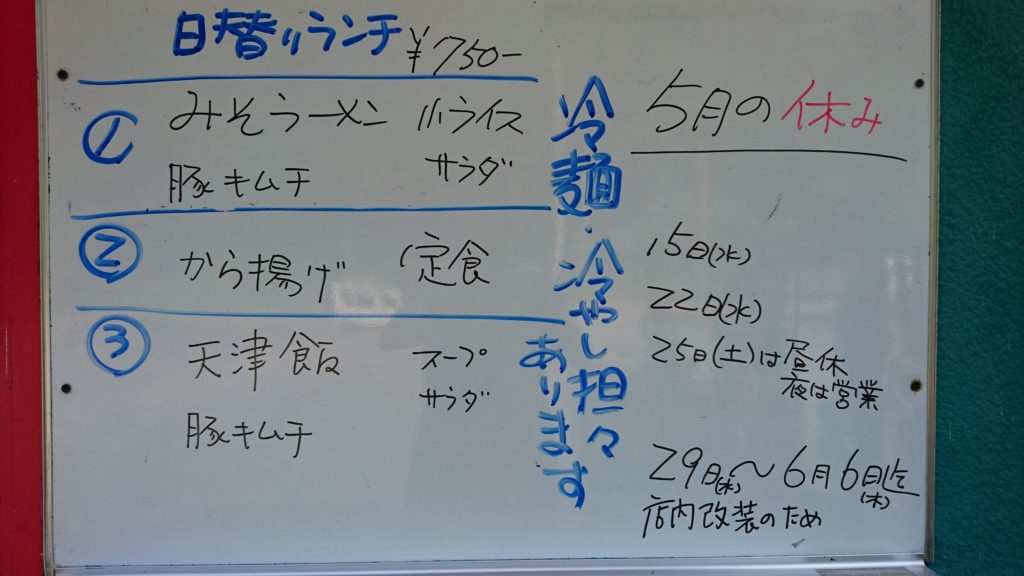 日替りランチ ¥750-
① みそラーメン 小ライス
豚キムチ サラダ
② から揚げ 定食
③ 天津飯 スープ
サラダ
豚キムチ
冷麺・冷やし担々
あります
5月の休み
15日(水)
22日(水)
25日(土)は昼休
夜は営業
29日(水)〜6月6日迄(木)
店内改装のため